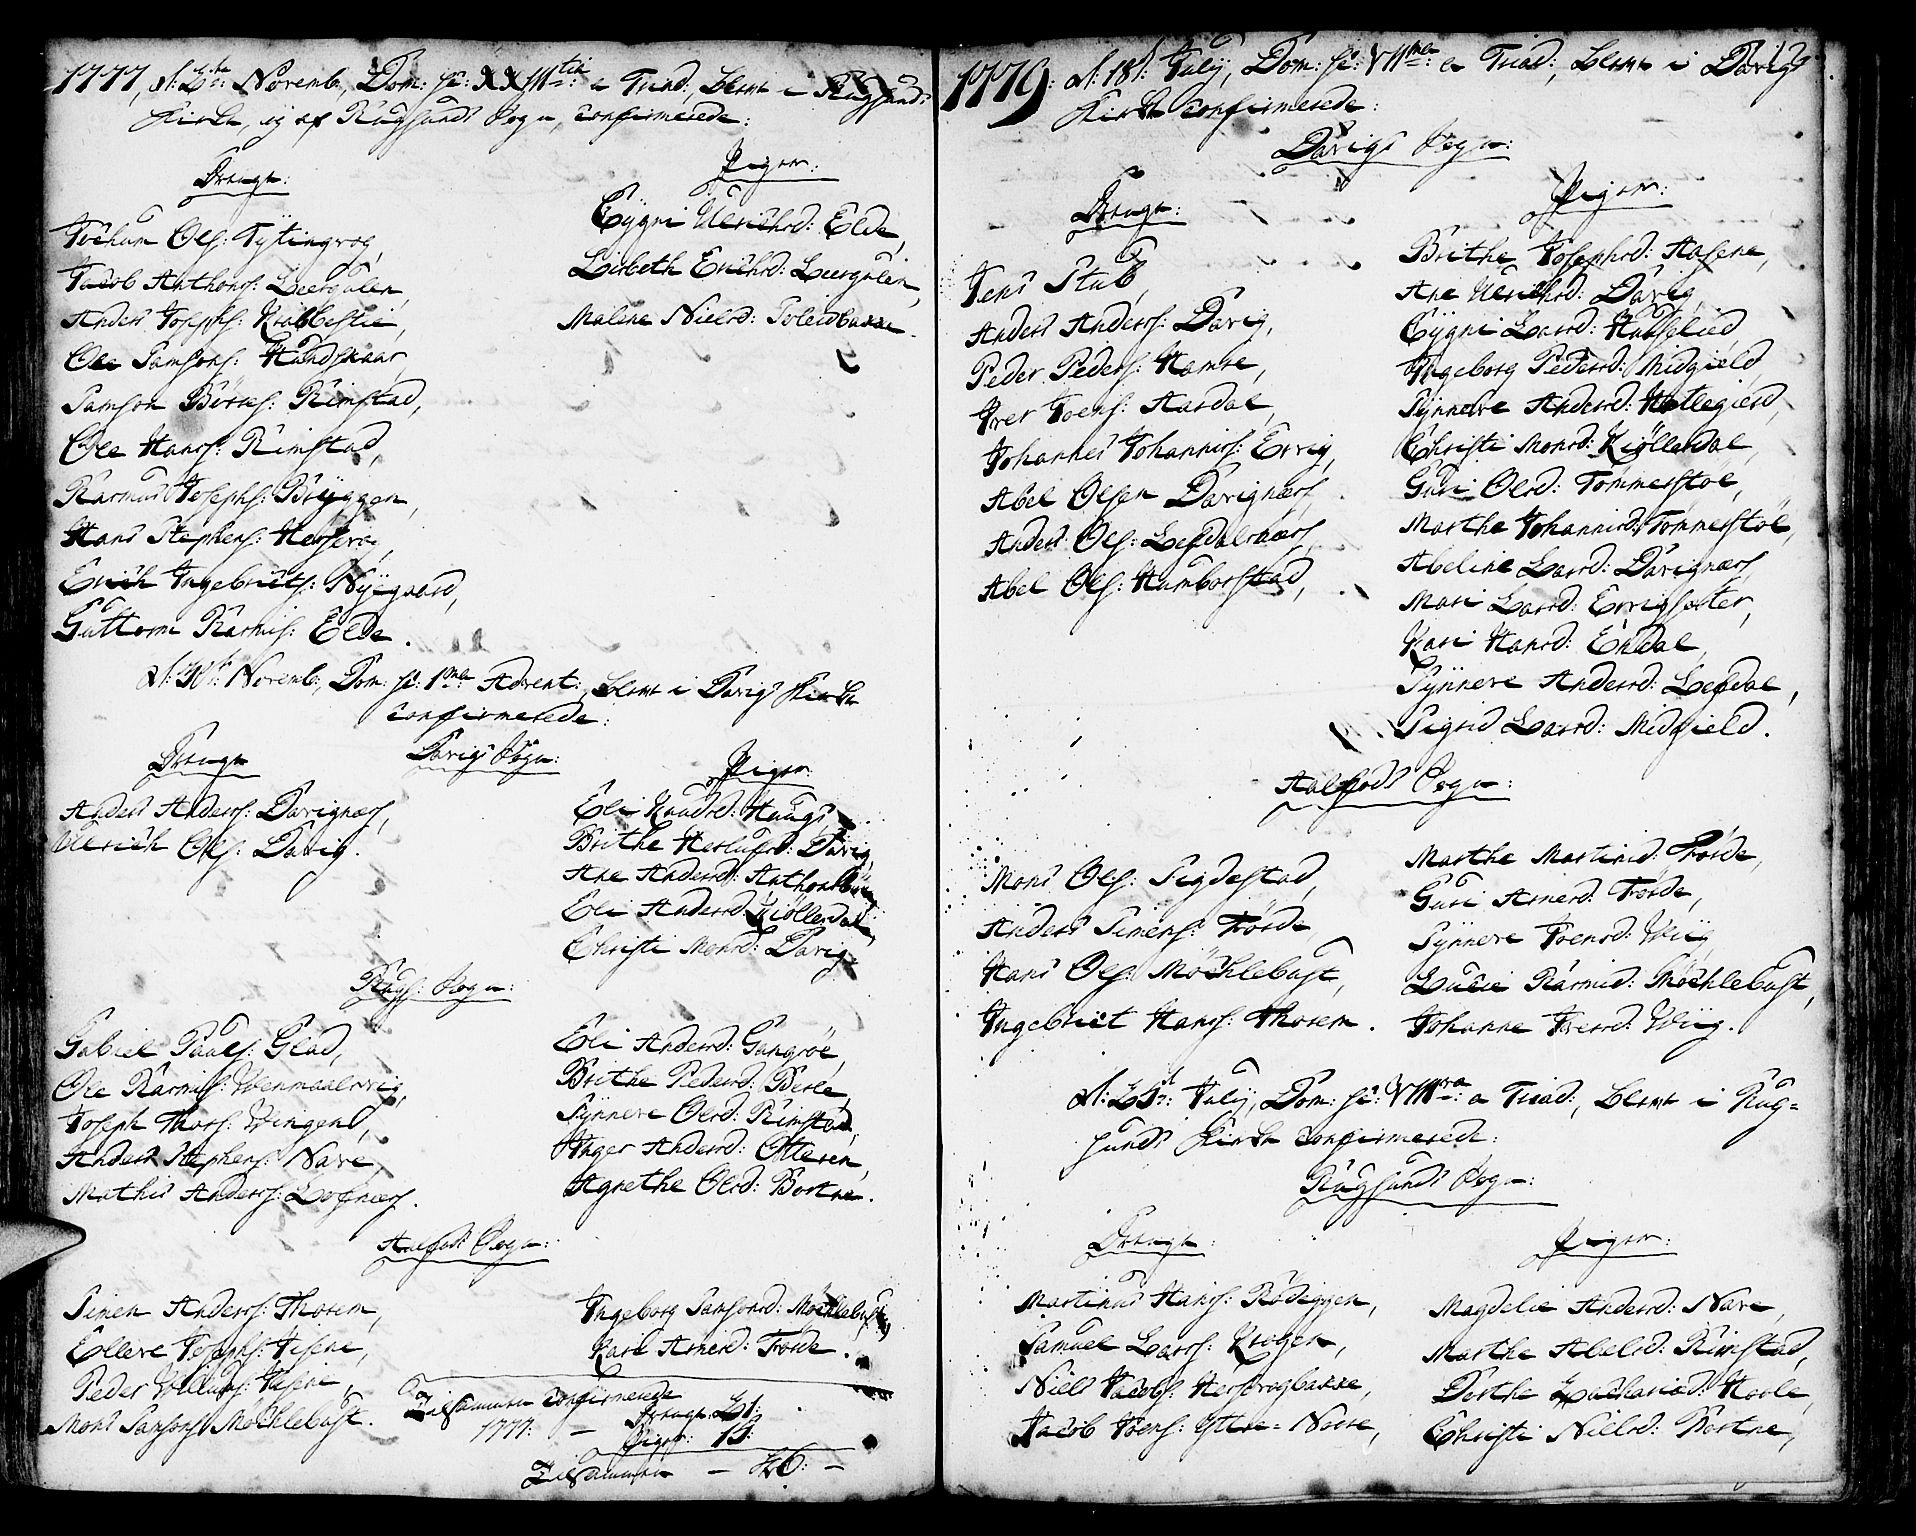 1777, d: 2de: Novemb., Dom: p: XXIIItia a Trind:, blevne i Rugsunds
Kirke, og af Rugsunds Sogn, confirmerede:
Drenge:
Jochum Ols: Tytingvog,
Jacob Anthons: Leergulen,
Anders Josephs: Krabbestie,
Ole Samsons: Hundskaar,
Samson Börres: Rimstad,
Ole Hans: Rimstad,
Rasmus Josephs: Bryggen,
Hans Stephens: Hessevog,
Erich Ingebricts: Nyegaard,
Guttorm Rasmus: Elde.
Piger:
Eygni Ulrichsd: Elde,
Lisbeth Erichsd: Leergulen,
Malene Nielsd: Tolesbakke.
d: 30te: Novemb:, Dom: p: 1ma Advent:, blevne i Davigs Kirke
confirmerede:
Davigs Sogn:
Drenge
Anders Anders: Davignæss,
Ulrich Ols: Davig.
Pigер:
Eli Knudsd: Haugs,
Brithe Herlufsd: Davig,
Ane Andersd:
Eli Andersd: Kiöllesdal,
Christi Monsd: Davig.
Rugs: Sogn:
Gabriel Pauls: Glad,
Ole Rasmus: Wemmaalsvig,
Joseph Thors: Vingend,
Anders Stephens: Nave,
Mathis Anders: Lofnæss.
Eli Andersd: Gangsöe,
Brithe Pedersd: Berle,
Synneve Olsd: Rimstad,
Inger Andersd: Otteren,
Agnethe Olsd: Bortne.
Aalfods Sogn:
Simen Anders: Thorem,
Elleve Josephs: Hisene,
Peder Willums: Hisene,
Mons Sansons: Möchlebust.
Ingeborg Sansonsd: Möchlebust,
Kari Arnesd: Förde.
Tilsammen confirmerede
1777: - Drenge: 21:
Piger: 15:
Tilsammen - 36: -
1779: d: 18d: July, Dom: p: VIIma: a Trind:, blevne i Davigs
Kirke confirmerede:
Davigs Sogn:
Drenge:
Jens Stub,
Anders Anders: Davig,
Peder Peders: Hamre,
Iver Joens: Aardal,
Johannes Johannis: Ervig,
Abel Olsen Davignæss,
Anders Ols: Lefdalsnæss,
Abel Ols: Humborstad,
Piger:
Brithe Josephsd: Aasene,
Ane Ulrichsd: Davig,
Eygni Larsd: Hundslied,
Ingeborg Pedersd: Midgield,
Synneve Andersd: Hatlegierd,
Christi Monsd: Kiöllesdal,
Guri Olsd: Tömmerstöe,
Marthe Johannisd: Tommerstöe,
Abeline Larsd: Davignæss,
Mari Larsd: Ervigsæter,
Kari Hansd: Endal,
Synneve Andersd: Lefdal,
Sigrid Larsd: Midgield.
Aalfods Sogn:
Mons Ols: Sigdestad,
Anders Simens: Förde,
Hans Ols: Möchlebust,
Ingebrict Hans: Thorem.
Marthe Martinsd: Förde,
Guri Arnesd: Förde,
Synneve Joensd: Wiig,
Lucie Rasmusd: Möchlebust,
Johanne Iversd: Wiig.
d: 25d: July, Dom: p: VIIIva: a Trind:, blevne i Rug-
sunds Kirke confirmerede:
Rugsunds Sogn:
Drenge:
Martinus Hans: Rödeggen,
Samuel Lars: Krogen,
Niels Jacobs: Hessevogbakke,
Jacob Joens: Yttre-Nore,
Piger:
Magdelie Andersd: Nave,
Marthe Abelsd: Rimstad,
Dorthe Zachariasd: Havle,
Christi Nielsd: Bortne,